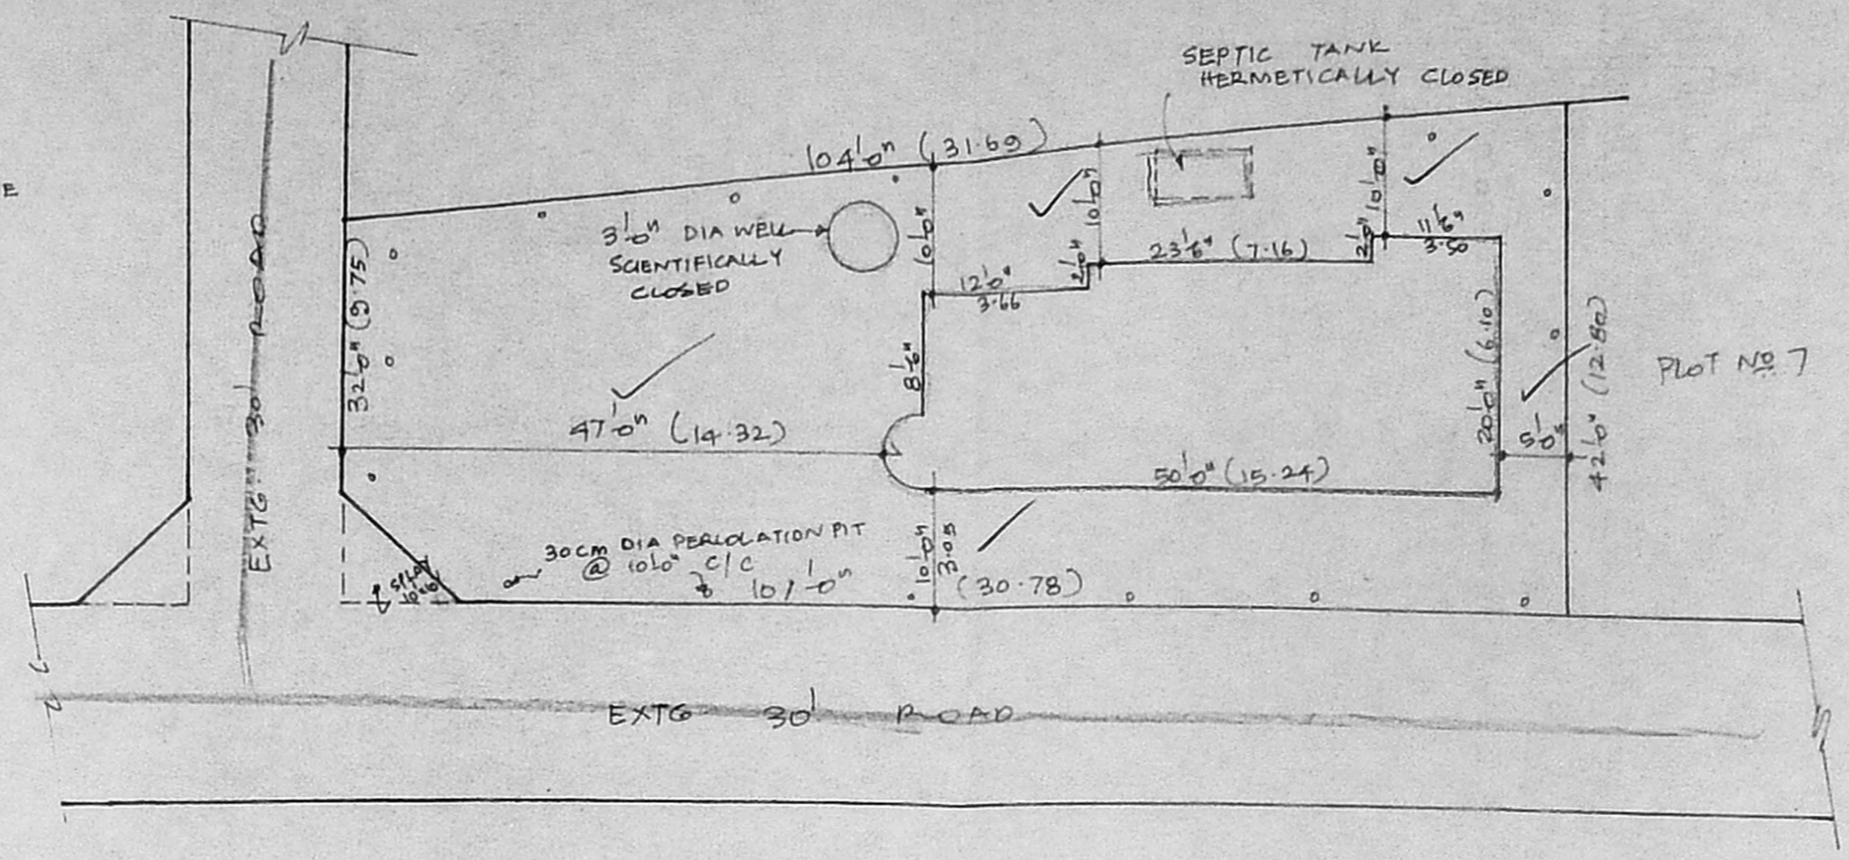 SEPTIC TANK
HERMETICALLY CLOSED
104'-0" (31.69)
E
3'-0" DIA WELL
SCIENTIFICALLY
CLOSED
10'-0"
10'-0"
10'-0"
2'-0"
2'-0"
12'-0"
3.66
23'-6" (7.16)
11'-6"
3.50
32'-0" (9.75)
EXTG. 30' ROAD
8'-6"
47'-0" (14.32)
50'-0" (15.24)
20'-0" (6.10)
5'-0"
42'-0" (12.80)
PLOT NO 7
30CM DIA PERCOLATION PIT
@ 10'-0" C/C
SPLAY
101'-0" (30.78)
10'-0"
3.05
EXTG 30' ROAD